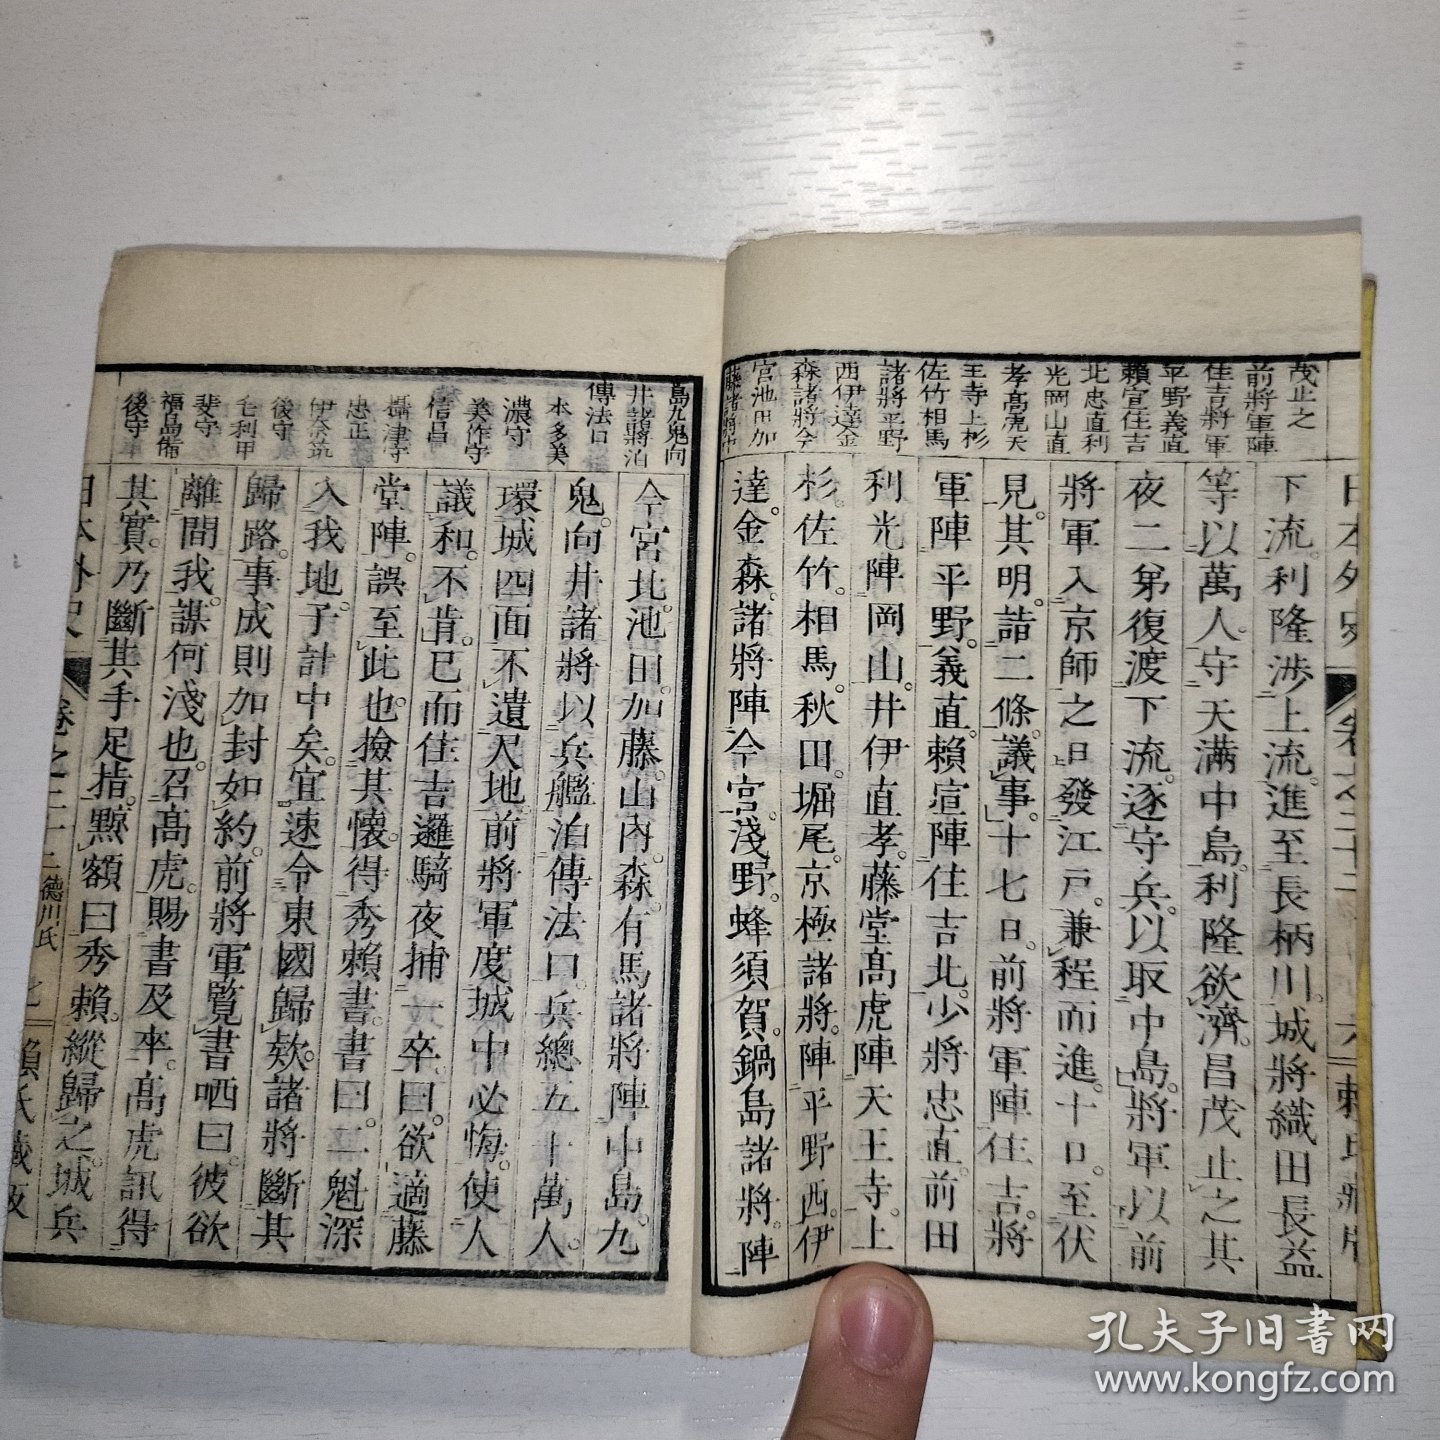 茂止之
前將軍陣
住吉將軍
平野義直
賴宣住吉
北忠直利
光岡山直
孝高虎天
王寺上杉
佐竹相馬
諸將平野
西伊達金
森諸將今
宮池田加
藤諸將中
下流利隆渉上流進至長柄川城將織田長益
等以萬人守天滿中島利隆欲濟昌茂止之其
夜二弟復渡下流逐守兵以取中島將軍以前
將軍入京師之日發江戸兼程而進十日至伏
見其明詣二條議事十七日前將軍陣住吉將
軍陣平野義直賴宣陣住吉北少將忠直前田
利光陣岡山井伊直孝藤堂高虎陣天王寺上
杉佐竹相馬秋田堀尾京極諸將陣平野西伊
達金森諸將陣今宮淺野蜂須賀鍋島諸將陣
島九鬼向
井諸將泊
傳法口
本多美
濃守
美作守
信昌
攝津守
忠正
後守
毛利甲
斐守
福島備
後守
今宮北池田加藤山内森有馬諸將陣中島九
鬼向井諸將以兵艦泊傳法口兵總五十萬人
環城四面不遺尺地前將軍度城中必悔使人
議和不肯已而住吉邏騎夜捕一卒曰欲適藤
堂陣誤至此也撿其懷得秀賴書書曰二魁深
入我地子計中矣宜速令東國歸欵諸將斷其
歸路事成則加封如約前將軍覽書哂曰彼欲
離間我謀何淺也召高虎賜書及卒高虎訊得
其實乃斷其手足指黥額曰秀賴縱歸之城兵
日本外史 卷之二十二 德川氏 七 賴氏藏版
孔夫子旧书网
www.kongfz.com